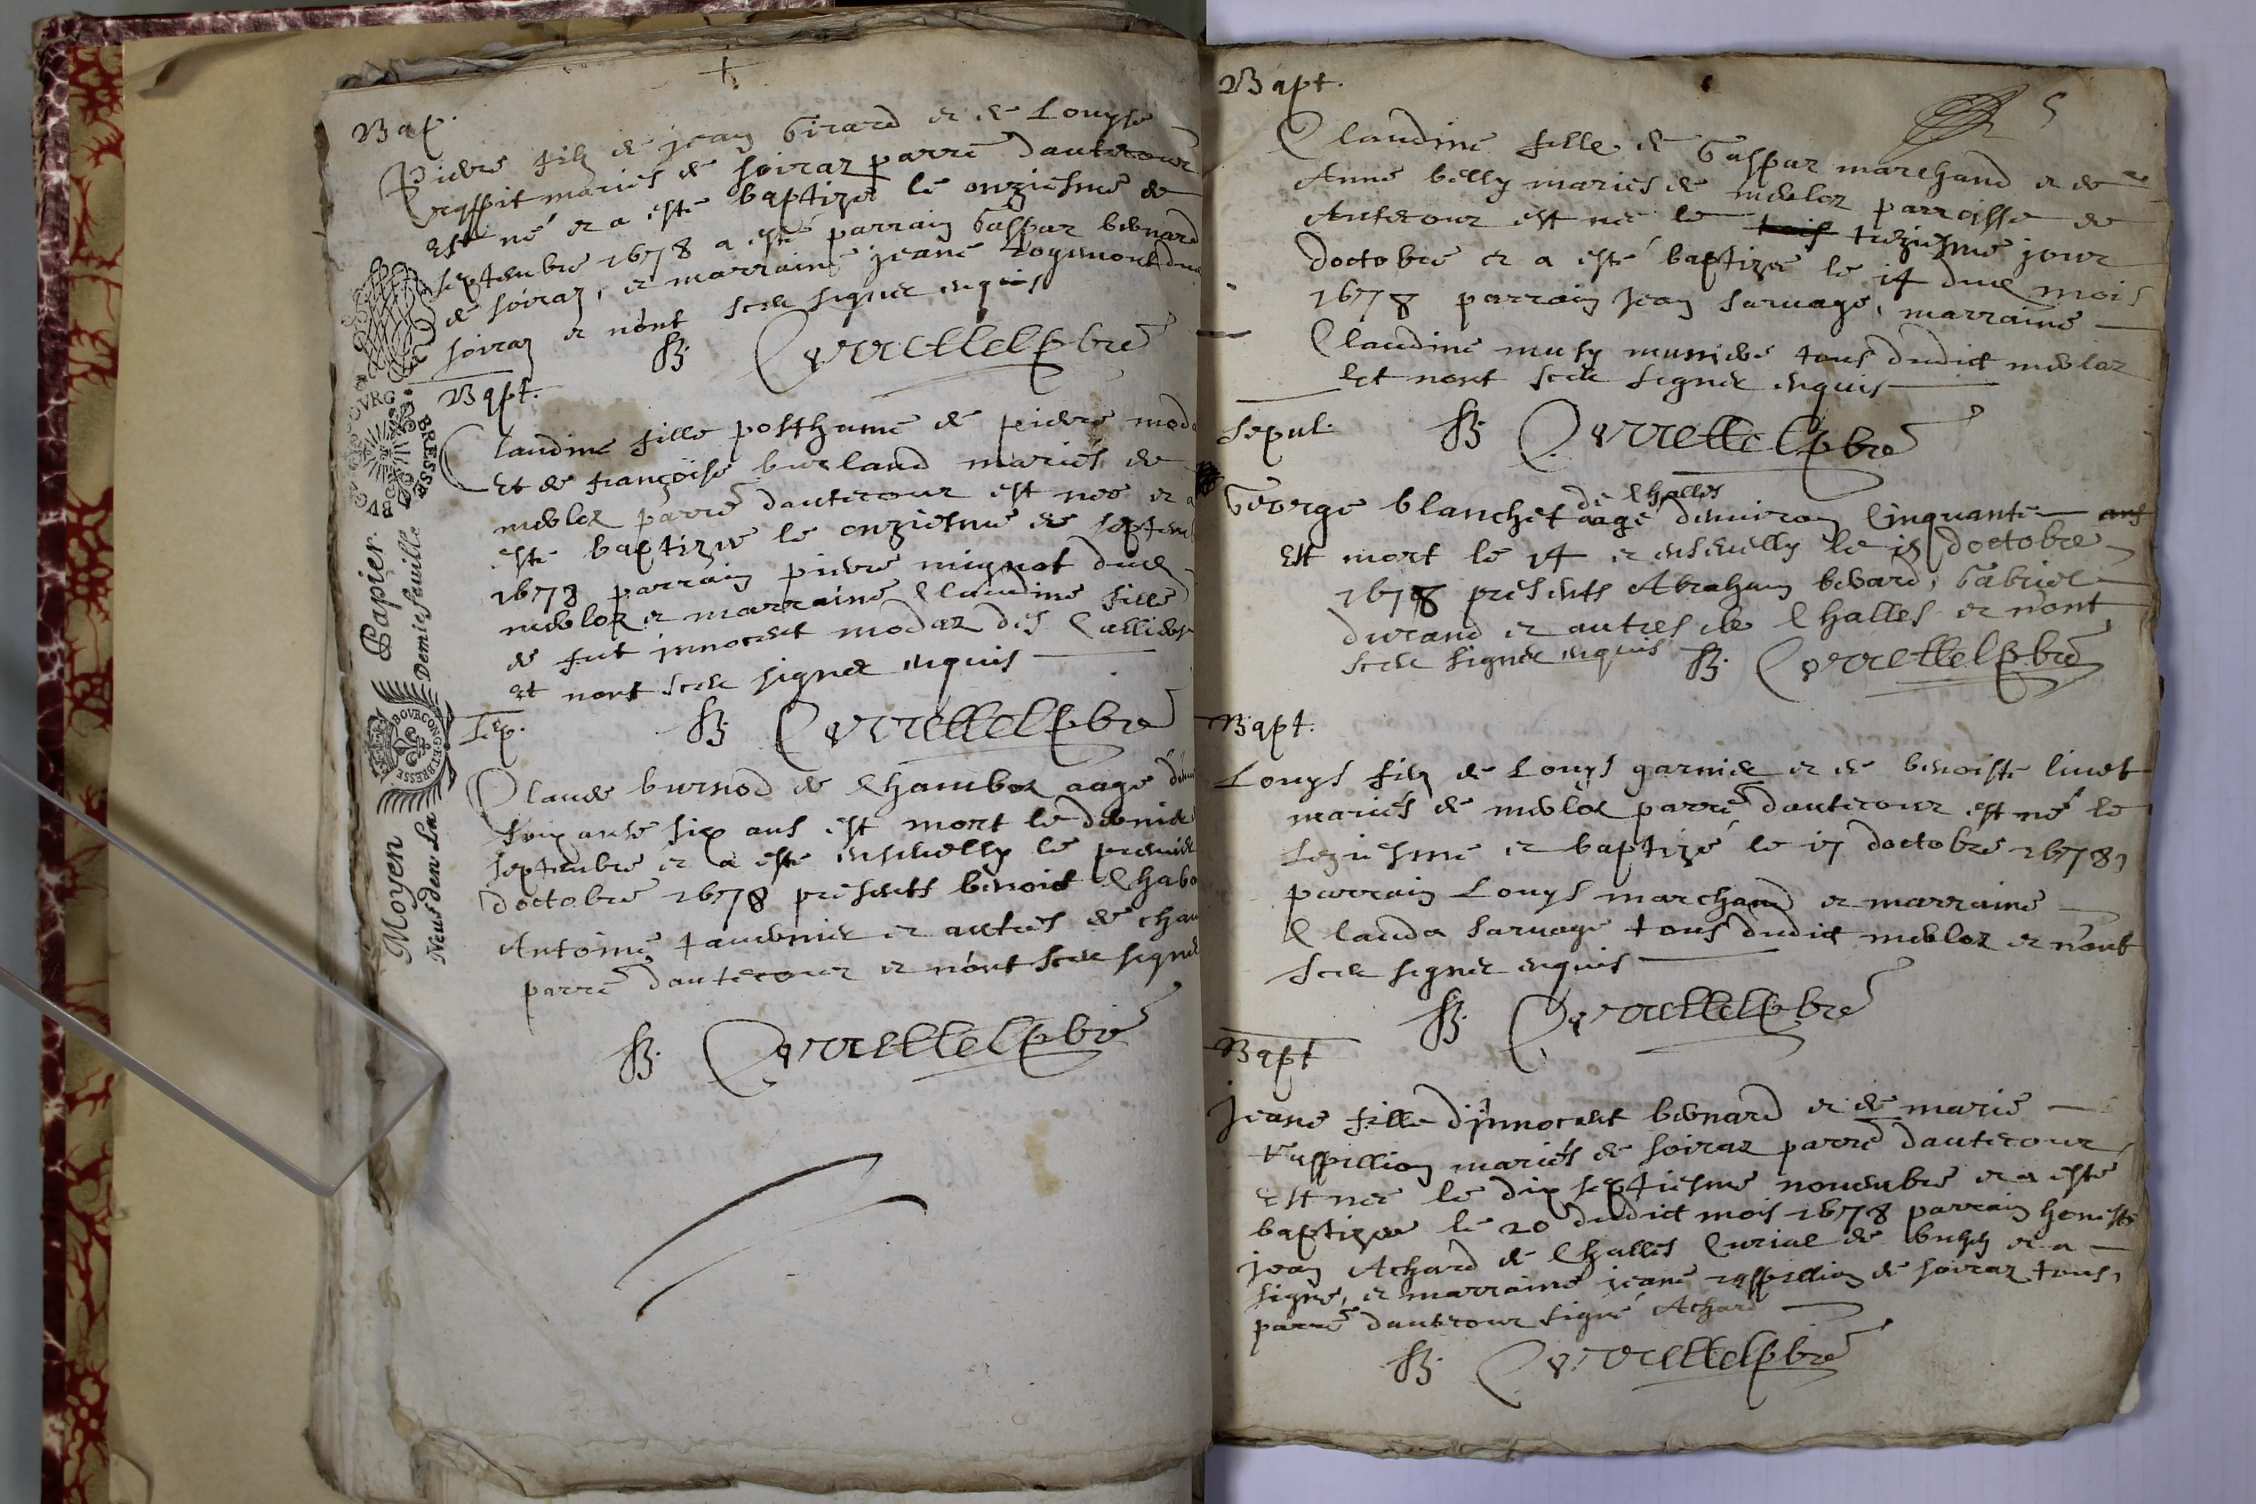 Bap.
Pierre filz de jean Girard et de Louyse
Raffit mariés de soiraz parre dautecour
Est né et a esté baptizé le onziesme de
septembre 1678 a esté parrain Gaspar bernard
de soiraz, et marraine jeane
soiraz et n'ont sceu signer enquis
B. Curtellet pbre
Bapt.
Claudine fille posthume de pierre
Et de françoise burland mariés de
merloz parre dautecour est nee et a
esté baptizee le onziesme de
1678 parrain pierre mignot dud
merloz et marraine Claudine fille
de fut jnnocent modaz des
et nont sceu signer enquis
B. Curtellet pbre
Sep.
Claude burnod de Chamboz aagé
soixante six ans est mort le dernier
septembre et a esté ensevelly le premier
doctobre 1678 présents benoict
Antoine tavernier et autres de
parre dautecour et n'ont sceu signer
B. Curtellet pbre
Moyen Papier
Neuf den. La Demie feuille
BOURGONG ET BRESSE
Bapt.
5
Claudine fille de Gaspar marchand et de
Anne belly mariés de merloz parroisse de
Autecour est née le trois treziesme jour
doctobre et a esté baptizée le 14 dud mois
1678 parrain Jean sarvage, marraine
Claudine musy tous dudict merloz
Et nont sceu signer enquis
Sepul.
B. Curtellet pbre
de Challes
George blanchet aagé denviron Cinquante ans
Est mort le 14 et ensevelly le 15 doctobre
1678 présents Abraham bevard, Gabriel
durand et autres de Challes et n'ont
sceu signer enquis B. Curtellet pbre
Bapt.
Louys filz de Louys garnier et de benoiste livet
mariés de merloz parre dautecour est né le
seziesme et baptizé le 17 doctobre 1678,
parrain Louys marchand et marraine
Clauda sarvage tous dudict merloz et n'ont
sceu signer enquis
B. Curtellet pbre
Bapt
jeane fille d'jnnocent bernard et de marie
Raffillion mariés de soiraz parre dautecour
Est nee le dix septiesme novembre et a esté
baptizee le 20 dudict mois 1678 parrain honeste
jean Achard de Challes Curial de et a
signé, et marraine jeane raffillion de soiraz tous
parre dautecour signé Achard
B. Curtellet pbre